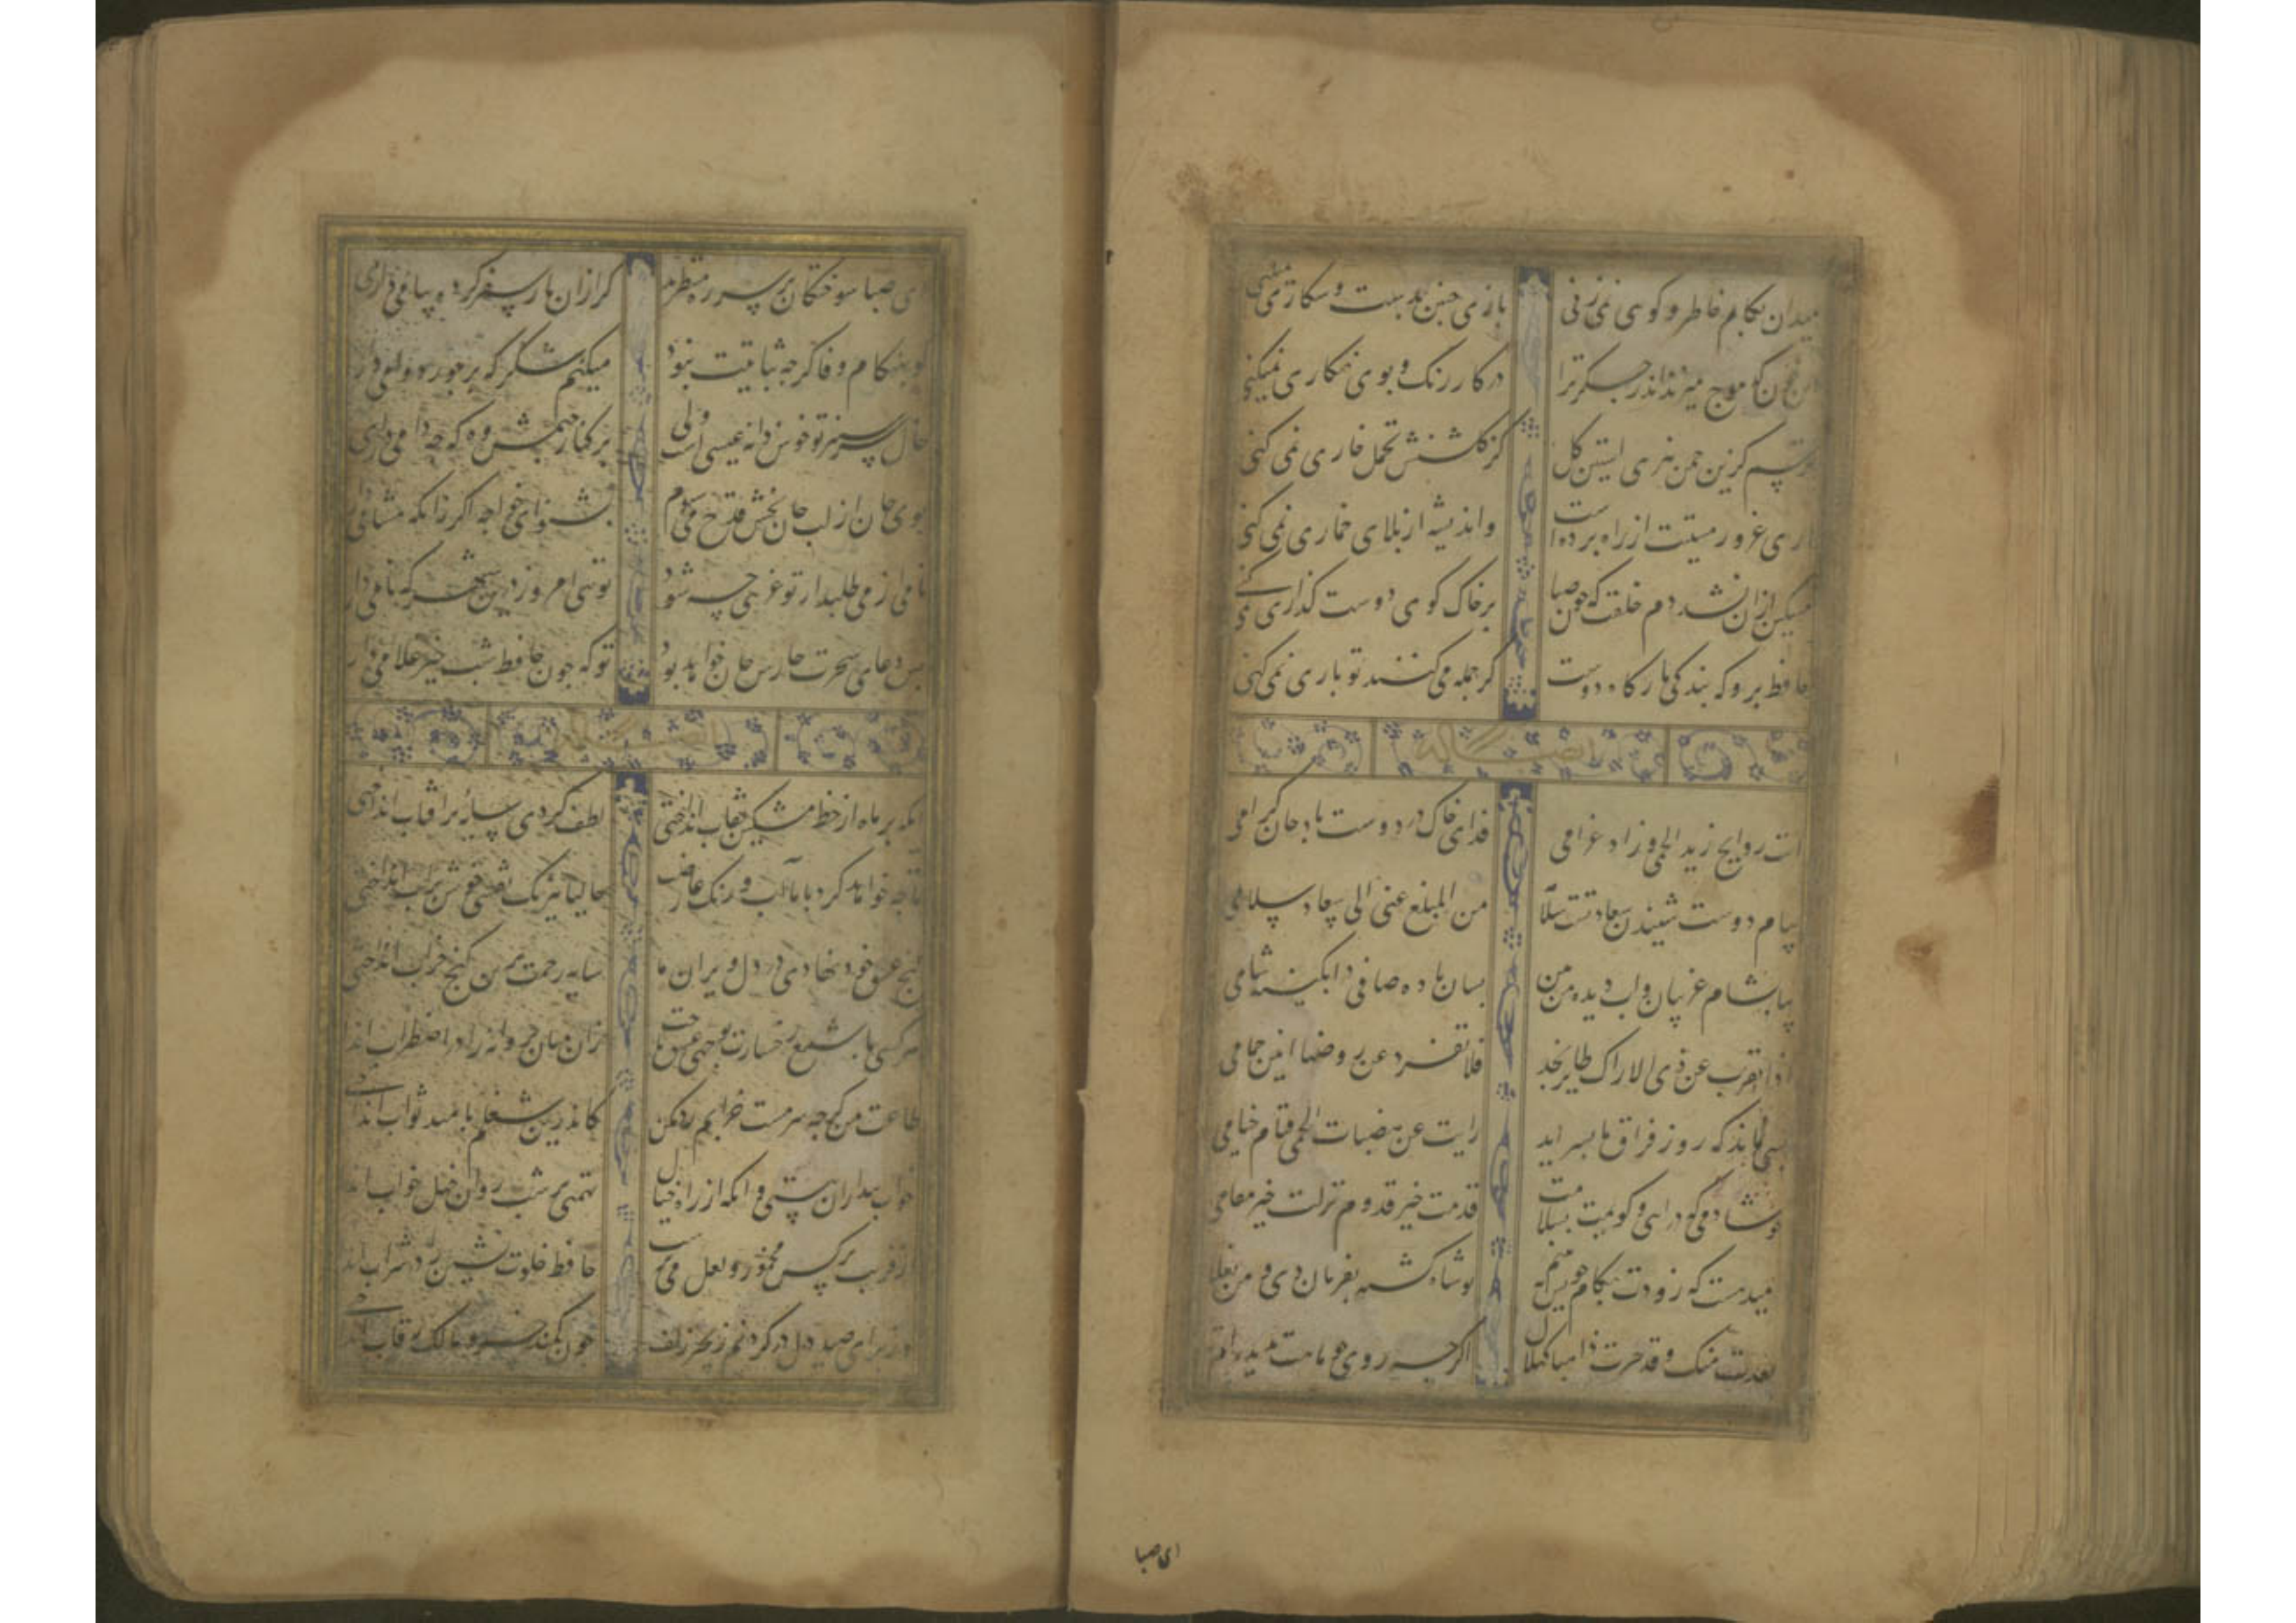 میدان بکام خاطر و کوی نمی زنی بازی چنین بدست و شکاری نمیکنی
این خون که موج میزند اندر جکر ترا در کار رنک و بوی نکاری نمیکنی
ترسم کزین چمن نبری استین کل کز کلشنش تحمل خاری نمی کنی
غرور مستیت از راه برده است و اندیشه از بلای خماری نمی کنی
مشکین ازان نشد دم خلقت که چون صبا بر خاک کوی دوست کذاری نمی کنی
حافظ برو که بندکی بارکاه دوست کر جمله می کنند تو باری نمی کنی
اتت روایح زید الحمی و زاد غرامی فدای خاک در دوست باد جان کرامی
پیام دوست شنیدن سعادتست و سلامت من المبلغ عنی الی سعاد سلامی
بیا بشام غریبان و اب دیده من بین بسان باده صافی در ابکینه شامی
اذا تغرب عن ذی الاراک طایر نجد فلا تفرد عن روضها انین حمامی
بسی نماند که روز فراق ما بسر اید رایت عن هضبات الحمی قباب خیامی
خوشا دمی که درایی و کویمت بسلامت قدمت خیر قدوم نزلت خیر مقامی
امیدهست که زودت بکام خویش ببینم تو شاد کشته بفرمان دهی و من بغلامی
بعدت منک و قد صرت ذائبا کهلال اکر چه روی چو ماهت ندیده ام
ای صبا
ای صبا سوختکان بر سر ره منتظرند کر از ان یار سفر کرده پیامی داری
کو بهنکام وفا کر چه ثباتیت نبود میکنم شکر که بر جور دوامی داری
خال سرسبز تو خوش دانه عیشی است ولی بر کنار چمنش وه که چه دامی داری
بوی جان از لب جان بخش قدح می شنوم بشنو ای خواجه اکر زانکه مشامی داری
نامی ار می طلبد از تو غریبی چه شود تویی امروز درین شهر که نامی داری
بس دعای سحرت حارس جان خواهد بود تو که چون حافظ شب خیز غلامی داری
ایکه بر ماه از خط مشکین نقاب انداختی لطف کردی سایه بر افتاب انداختی
تا چه خواهد کرد با ما اب و رنک عارضت حالیا نیرنک نقشی خوش بر اب انداختی
کنج عشق خود نهادی در دل ویران ما سایه رحمت برین کنج خراب انداختی
هر کسی با شمع رخسارت بوجهی عشق باخت زان میان پروانه را در اضطراب انداختی
طاعت من کر چه سرمست خرابم رد مکن کاندرین شغلم بامید ثواب انداختی
خواب بیداران ببستی و انکه از راه خیال تهمتی بر شب روان خیل خواب انداختی
از فریب نرکس مخمور و لعل می پرست حافظ خلوت نشین را در شراب انداختی
وز برای صید دل در کردنم زنجیر زلف چون کمند خسرو مالک رقاب انداختی